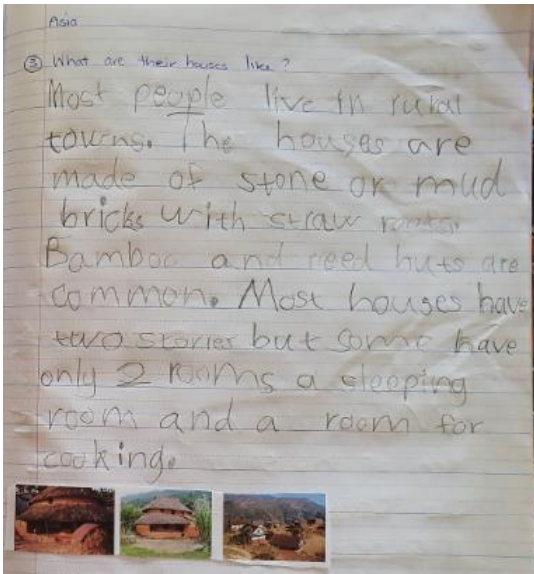 Asia
③ What are their houses like?
Most people live in rural
towns. The houses are
made of stone or mud
bricks with straw roofs.
Bamboo and reed huts are
common. Most houses have
two stories but some have
only 2 rooms a sleeping
room and a room for
cooking.